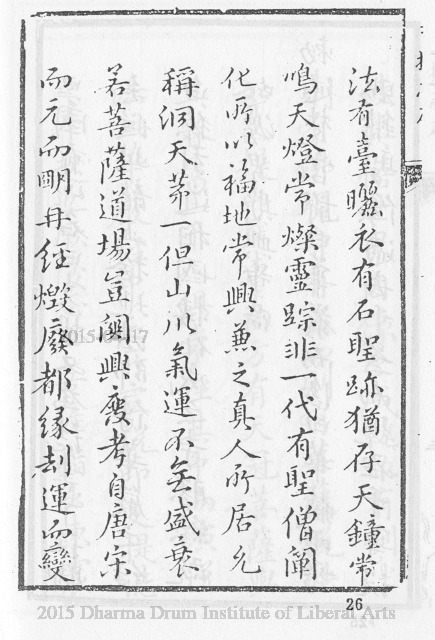 法有臺曬衣有石聖跡猶存天鐘常
鳴天燈常燦靈踪非一代有聖僧闡
化所以福地常興兼之真人所居允
稱洞天苐一但山川氣運不無盛衰
若菩薩道場豈関興廢考自唐宋
而元而眀毋經燬廢都緣刦運而變
26
2015 Dharma Drum Institute of Liberal Arts